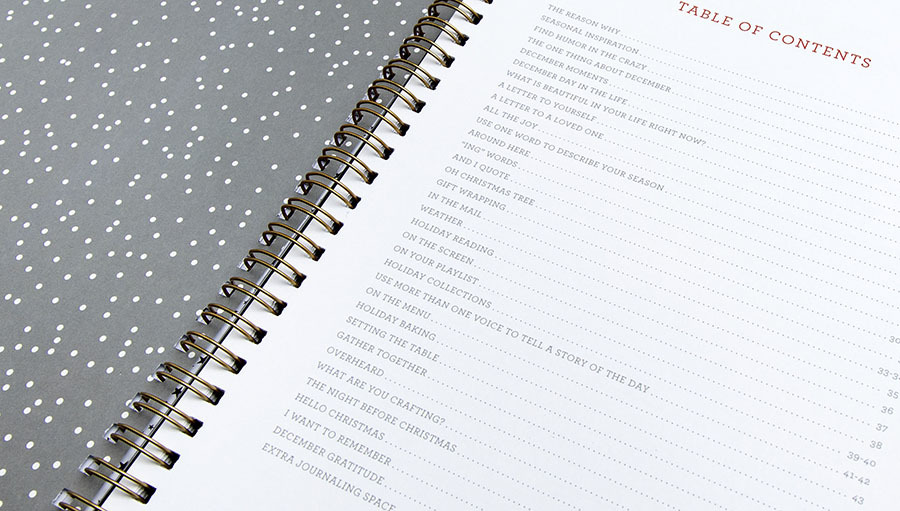 TABLE OF CONTENTS
THE REASON WHY
SEASONAL INSPIRATION
FIND HUMOR IN THE CRAZY
THE ONE THING ABOUT DECEMBER
DECEMBER MOMENTS
DECEMBER DAY IN THE LIFE
WHAT IS BEAUTIFUL IN YOUR LIFE RIGHT NOW?
A LETTER TO YOURSELF
A LETTER TO A LOVED ONE
ALL THE JOY
USE ONE WORD TO DESCRIBE YOUR SEASON
AROUND HERE
"ING" WORDS
AND I QUOTE
OH CHRISTMAS TREE
GIFT WRAPPING
IN THE MAIL
WEATHER
HOLIDAY READING
ON THE SCREEN
ON YOUR PLAYLIST
HOLIDAY COLLECTIONS
USE MORE THAN ONE VOICE TO TELL A STORY OF THE DAY
ON THE MENU
HOLIDAY BAKING
SETTING THE TABLE
GATHER TOGETHER
OVERHEARD
WHAT ARE YOU CRAFTING?
THE NIGHT BEFORE CHRISTMAS
HELLO CHRISTMAS
I WANT TO REMEMBER
DECEMBER GRATITUDE
EXTRA JOURNALING SPACE
35
36
37
38
39-40
41-42
43